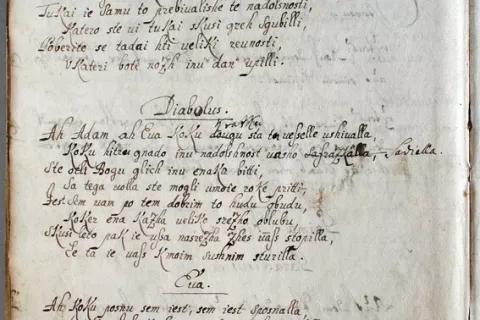 Tukai ie Samu to prebivalishe te nadolsnosti,
Katero ste vi tukai skusi greh sgubilli,
Poberite se tadai hti veliki revnosti,
Vkateri bote nozh inu dan vpilli.
Diabolus.
Ah Adam, ah Eva koku dougu sta to vesselle vshivalla,
kratku
Koku hitru gnado inu nadolshnost vasho sadiella.
Ste otli Bogu glich inu enaku bitti,
Sa tega volla ste mogli vmoie roke pritti,
Jest sem vam po tem dobrim to hudu obudu,
Koker ena Kazha veliko srezho oblubu,
Skusi leto pak ie vsa nasrezha zhes vass stopilla,
Le ta ie vass Kmoim sushnim sturilla.
Eva.
Ah koku posnu sem iest, sem iest sposnalla